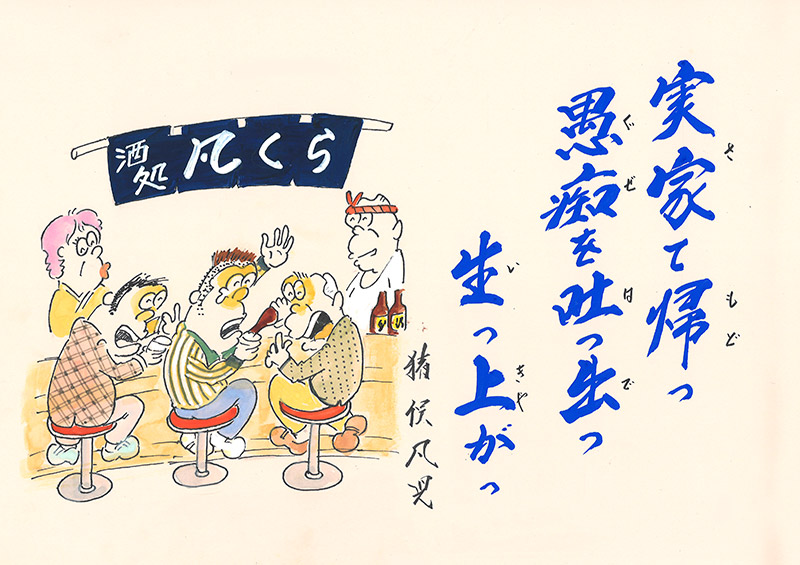 実家て帰っ
さ もど
愚痴を吐っ出っ
ぐ ぜ は で
生っ上がっ
い きや
猪俣凡児
酒処 凡くら